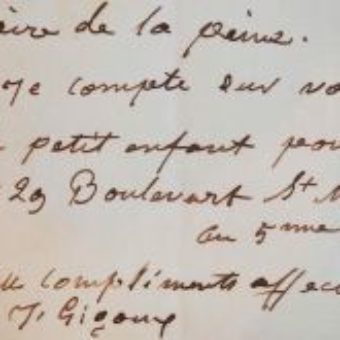 aire de la peine.
Je compte sur vo
petit enfant pour
29 Boulevart St M
au 5me
compliments affec
J. Gigoux